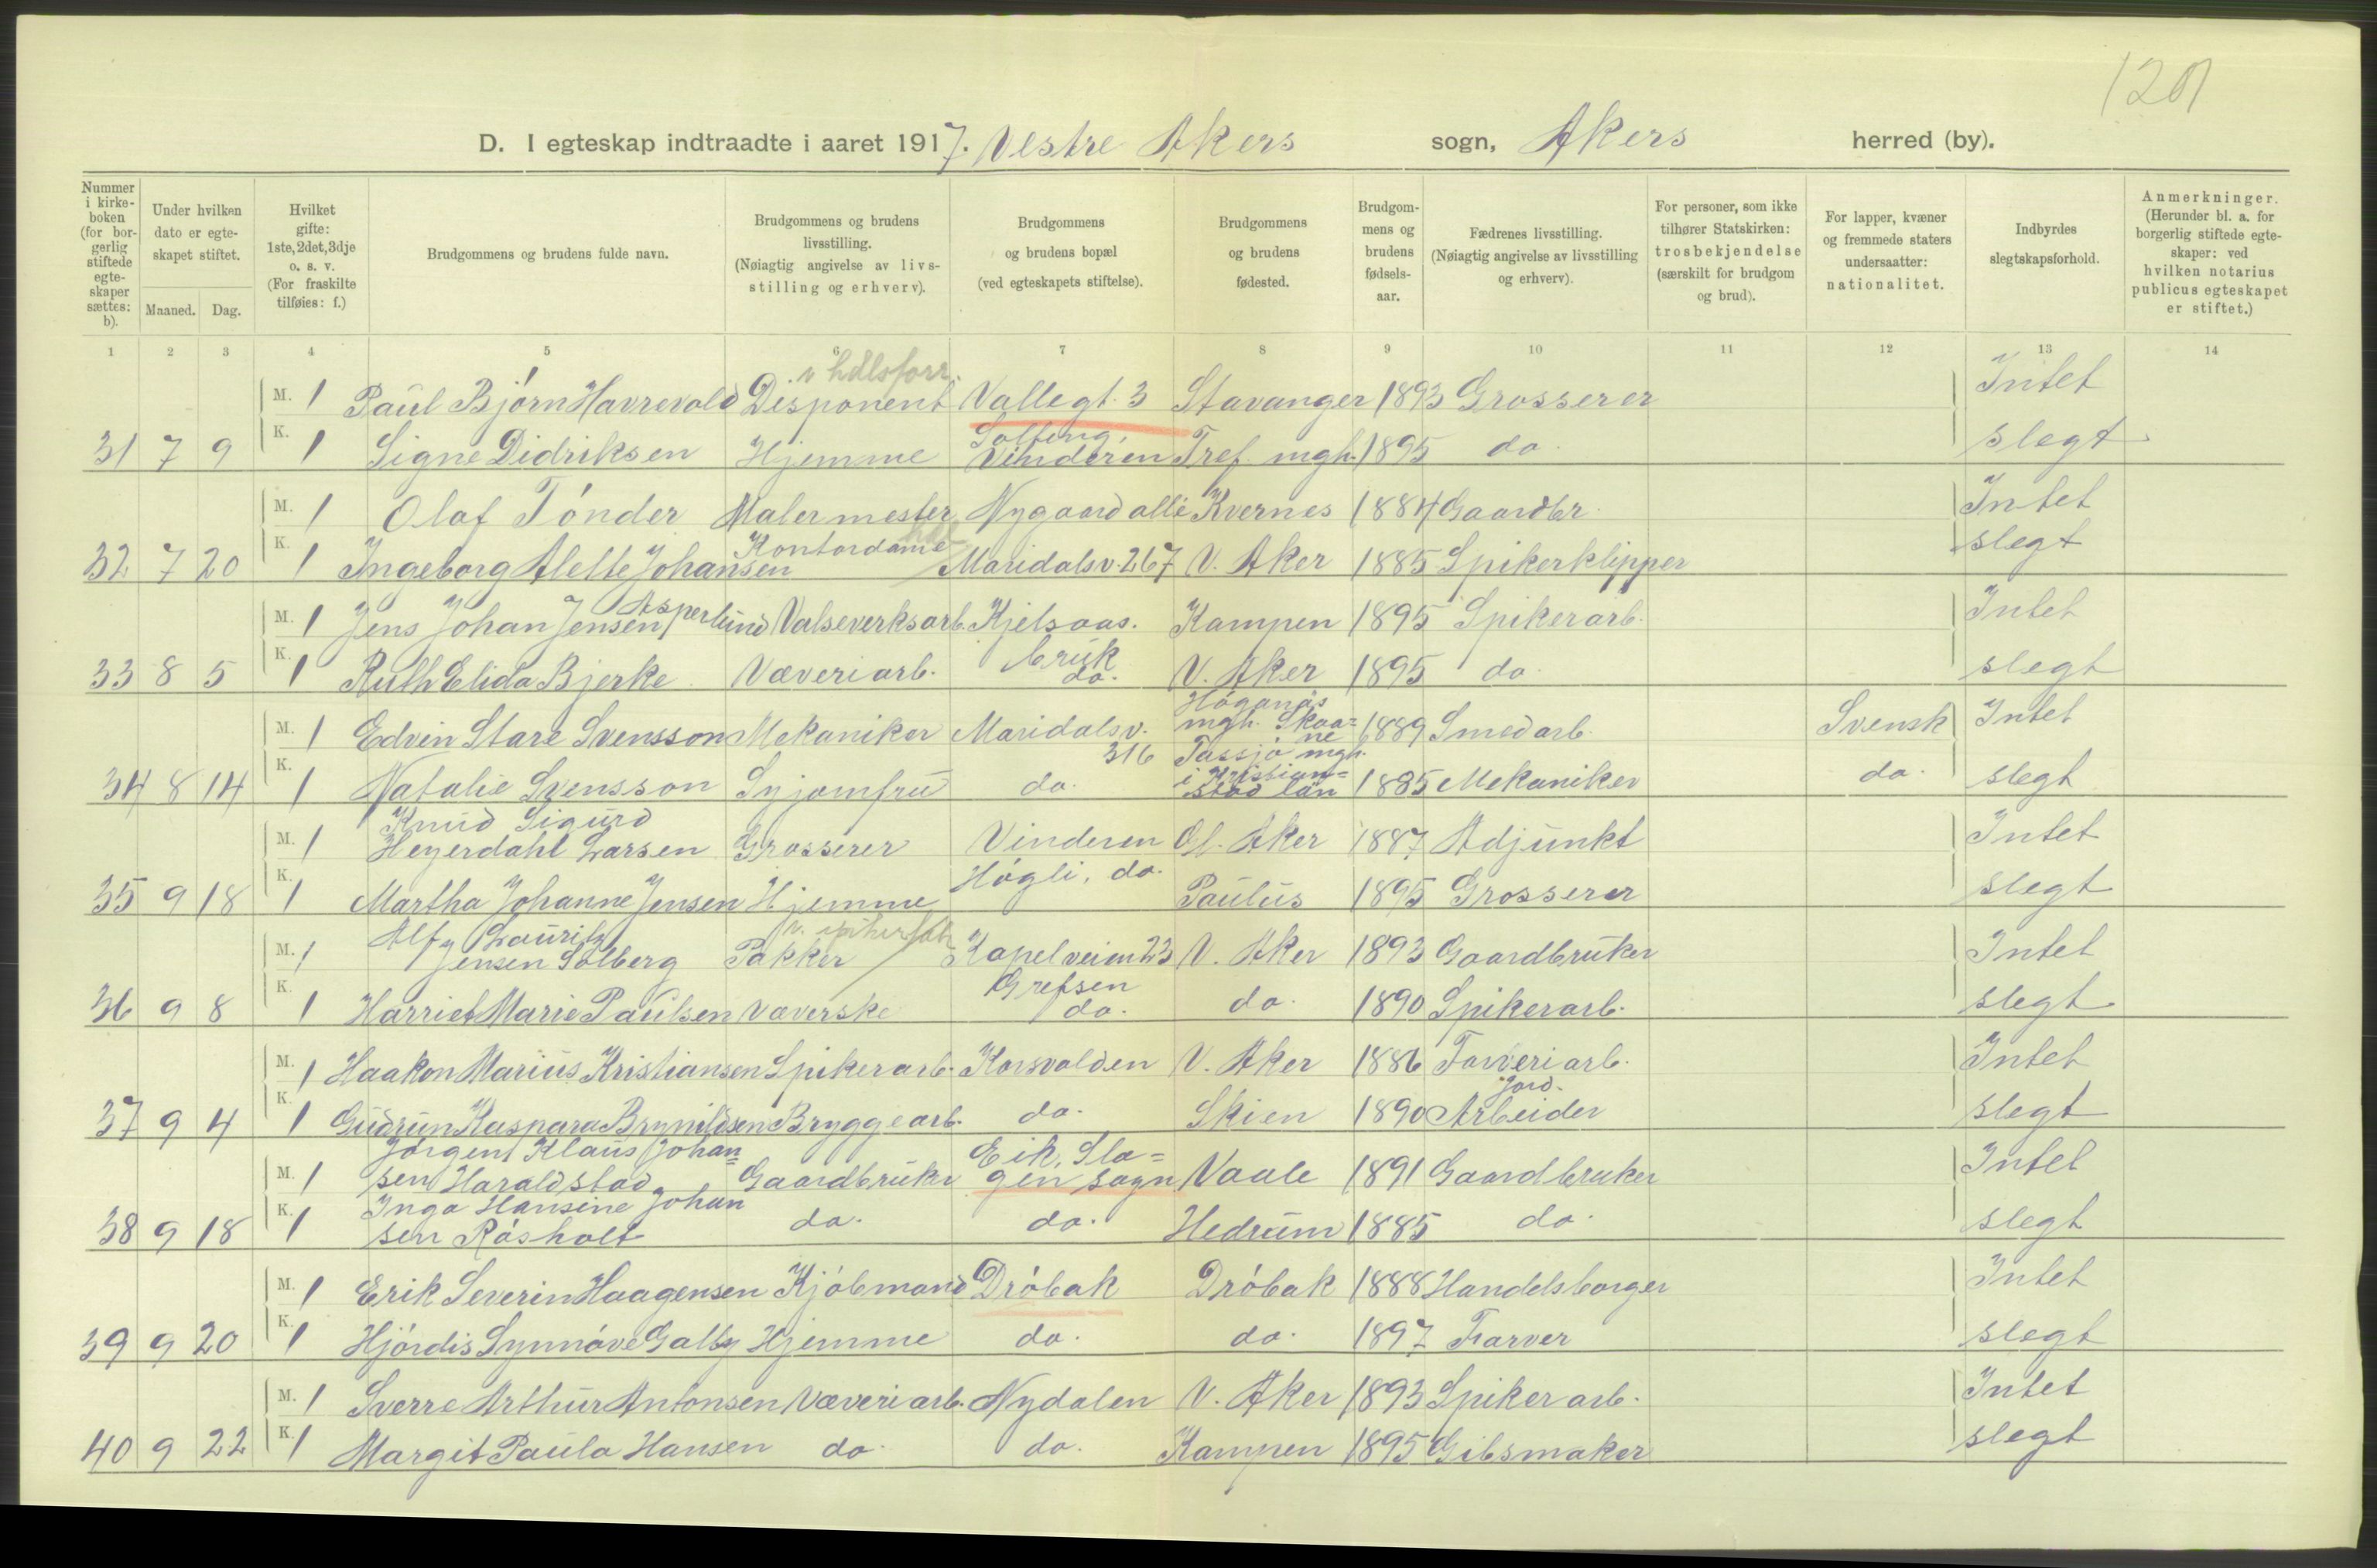 1201
D. I egteskap indtraadte i aaret 1917. Vestre Akers sogn, Akers herred (by).
Nummer i kirke-boken (for bor-gerlig stiftede egte-skaper sættes: b).
Under hvilken dato er egte-skapet stiftet.
Maaned. Dag.
Hvilket gifte: 1ste, 2det, 3dje o. s. v. (For fraskilte tilføies: f.)
Brudgommens og brudens fulde navn.
Brudgommens og brudens livsstilling. (Nøiagtig angivelse av livs-stilling og erhverv).
Brudgommens og brudens bopæl (ved egteskapets stiftelse).
Brudgommens og brudens fødested.
Brudgom-mens og brudens fødsels-aar.
Fædrenes livsstilling. (Nøiagtig angivelse av livsstilling og erhverv).
For personer, som ikke tilhører Statskirken: trosbekjendelse (særskilt for brudgom og brud).
For lapper, kvæner og fremmede staters undersaatter: nationalitet.
Indbyrdes slegtskapsforhold.
Anmerkninger. (Herunder bl. a. for borgerlig stiftede egte-skaper: ved hvilken notarius publicus egteskapet er stiftet.)
1 2 3 4 5 6 7 8 9 10 11 12 13 14
v hdlsforr.
M. 1 Paul Bjørn Havrevold Disponent Vallegt. 3 Stavanger 1893 Grosserer Intet
Solbeng,
31 7 9 K. 1 Signe Didriksen Hjemme Vinderen Tref. mgh. 1895 do. slegt
M. 1 Olaf Tónder Malermester Nygaard allé Kvernes 1884 Gaardbr. Intet
Kontordame
32 7 20 K. 1 Ingeborg Alette Johansen Maridalsv. 267 V. Aker 1885 Spikerklipper slegt
M. 1 Jens Johan Jensen Asperlund Valseverksarb. Kjelsaas. Kampen 1895 Spikerarb. Intet
bruk
33 8 5 K. 1 Ruth Elida Bjerke Væveriarb. do. V. Aker 1895 do. slegt
Höganäs
M. 1 Edvin Stare Svensson Mekaniker Maridalsv. 316 mgh. Skaa=ne 1889 Smedarb. Svensk Intet
Tassjö mgh.
34 8 14 K. 1 Natalie Svensson Syjomfru do. i Kristian=stad län 1885 Mekaniker do. slegt
Knud Sigurd
M. 1 Heyerdahl Larsen Grosserer Vinderen Ø. Aker 1887 Adjunkt Intet
35 9 18 K. 1 Martha Johanne Jensen Hjemme Høgli, do. Paulus 1895 Grosserer slegt
Alf Lauritz
M. 1 Jensen Solberg Pakker v. spikerfabr. Kapelveien 23 V. Aker 1893 Gaardbruker Intet
Grefsen
36 9 8 K. 1 Harriet Marie Paulsen Væverske do. do. 1890 Spikerarb. slegt
M. 1 Haakon Marius Kristiansen Spikerarb. Korsvolden V. Aker 1886 Farveriarb. Intet
Jord.
37 9 4 K. 1 Gudrun Kaspara Brynildsen Bryggearb. do. Skien 1890 Arbeider slegt
Jørgent Klaus Johan= Eik, Sla=
M. 1 sen Haraldstad Gaardbruker gen sogn Vaale 1891 Gaardbruker Intet
Inga Hansine Johan
38 9 18 K. 1 sen Råsholt do. do. Hedrum 1885 do. slegt
M. 1 Erik Severin Haagensen Kjøbmand Drøbak Drøbak 1888 Handelsborger Intet
39 9 20 K. 1 Hjórdis Synnøve Galby Hjemme do. do. 1897 Farver slegt
M. 1 Sverre Arthur Antonsen Væveriarb. Nydalen V. Aker 1893 Spikerarb. Intet
40 9 22 K. 1 Margit Paula Hansen do. do. Kampen 1895 Gibsmaker slegt